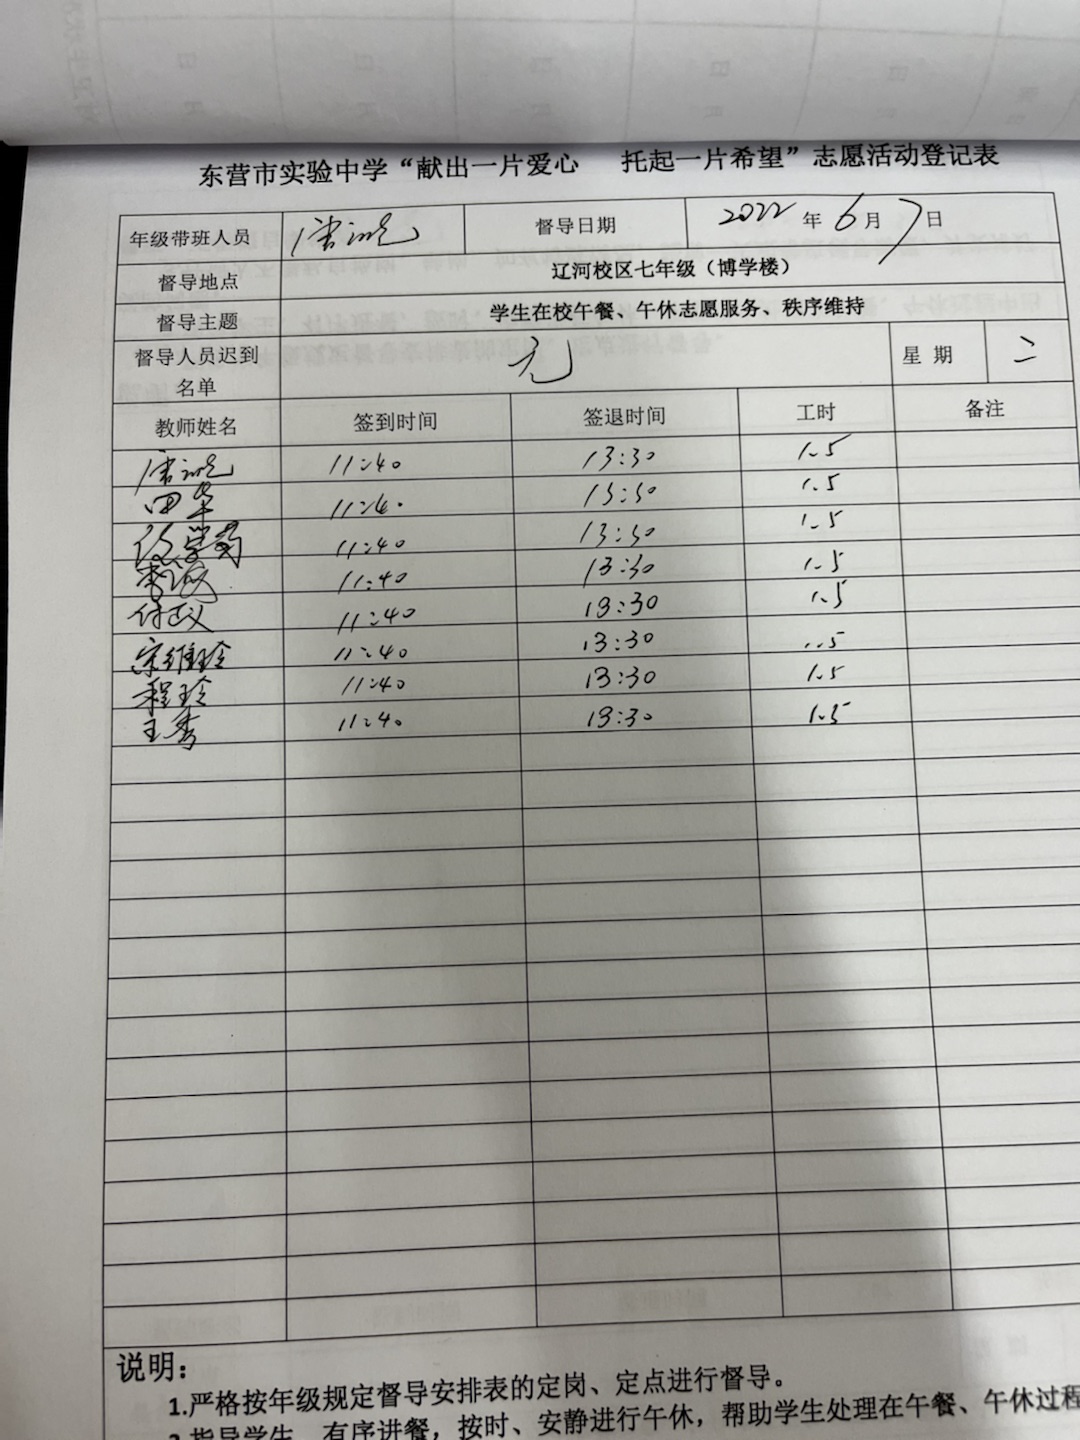 东营市实验中学“献出一片爱心 托起一片希望”志愿活动登记表
年级带班人员 督导日期 2022年6月7日
督导地点 辽河校区七年级（博学楼）
督导主题 学生在校午餐、午休志愿服务、秩序维持
督导人员迟到名单 无 星期 二
教师姓名 签到时间 签退时间 工时 备注
11:40 13:30 1.5
田华 11:40 13:30 1.5
段学菊 11:40 13:30 1.5
11:40 13:30 1.5
付政 11:40 13:30 1.5
宋维玲 11:40 13:30 1.5
程玲 11:40 13:30 1.5
王秀 11:40 13:30 1.5
说明：
1.严格按年级规定督导安排表的定岗、定点进行督导。
2.指导学生 有序进餐，按时、安静进行午休，帮助学生处理在午餐、午休过程